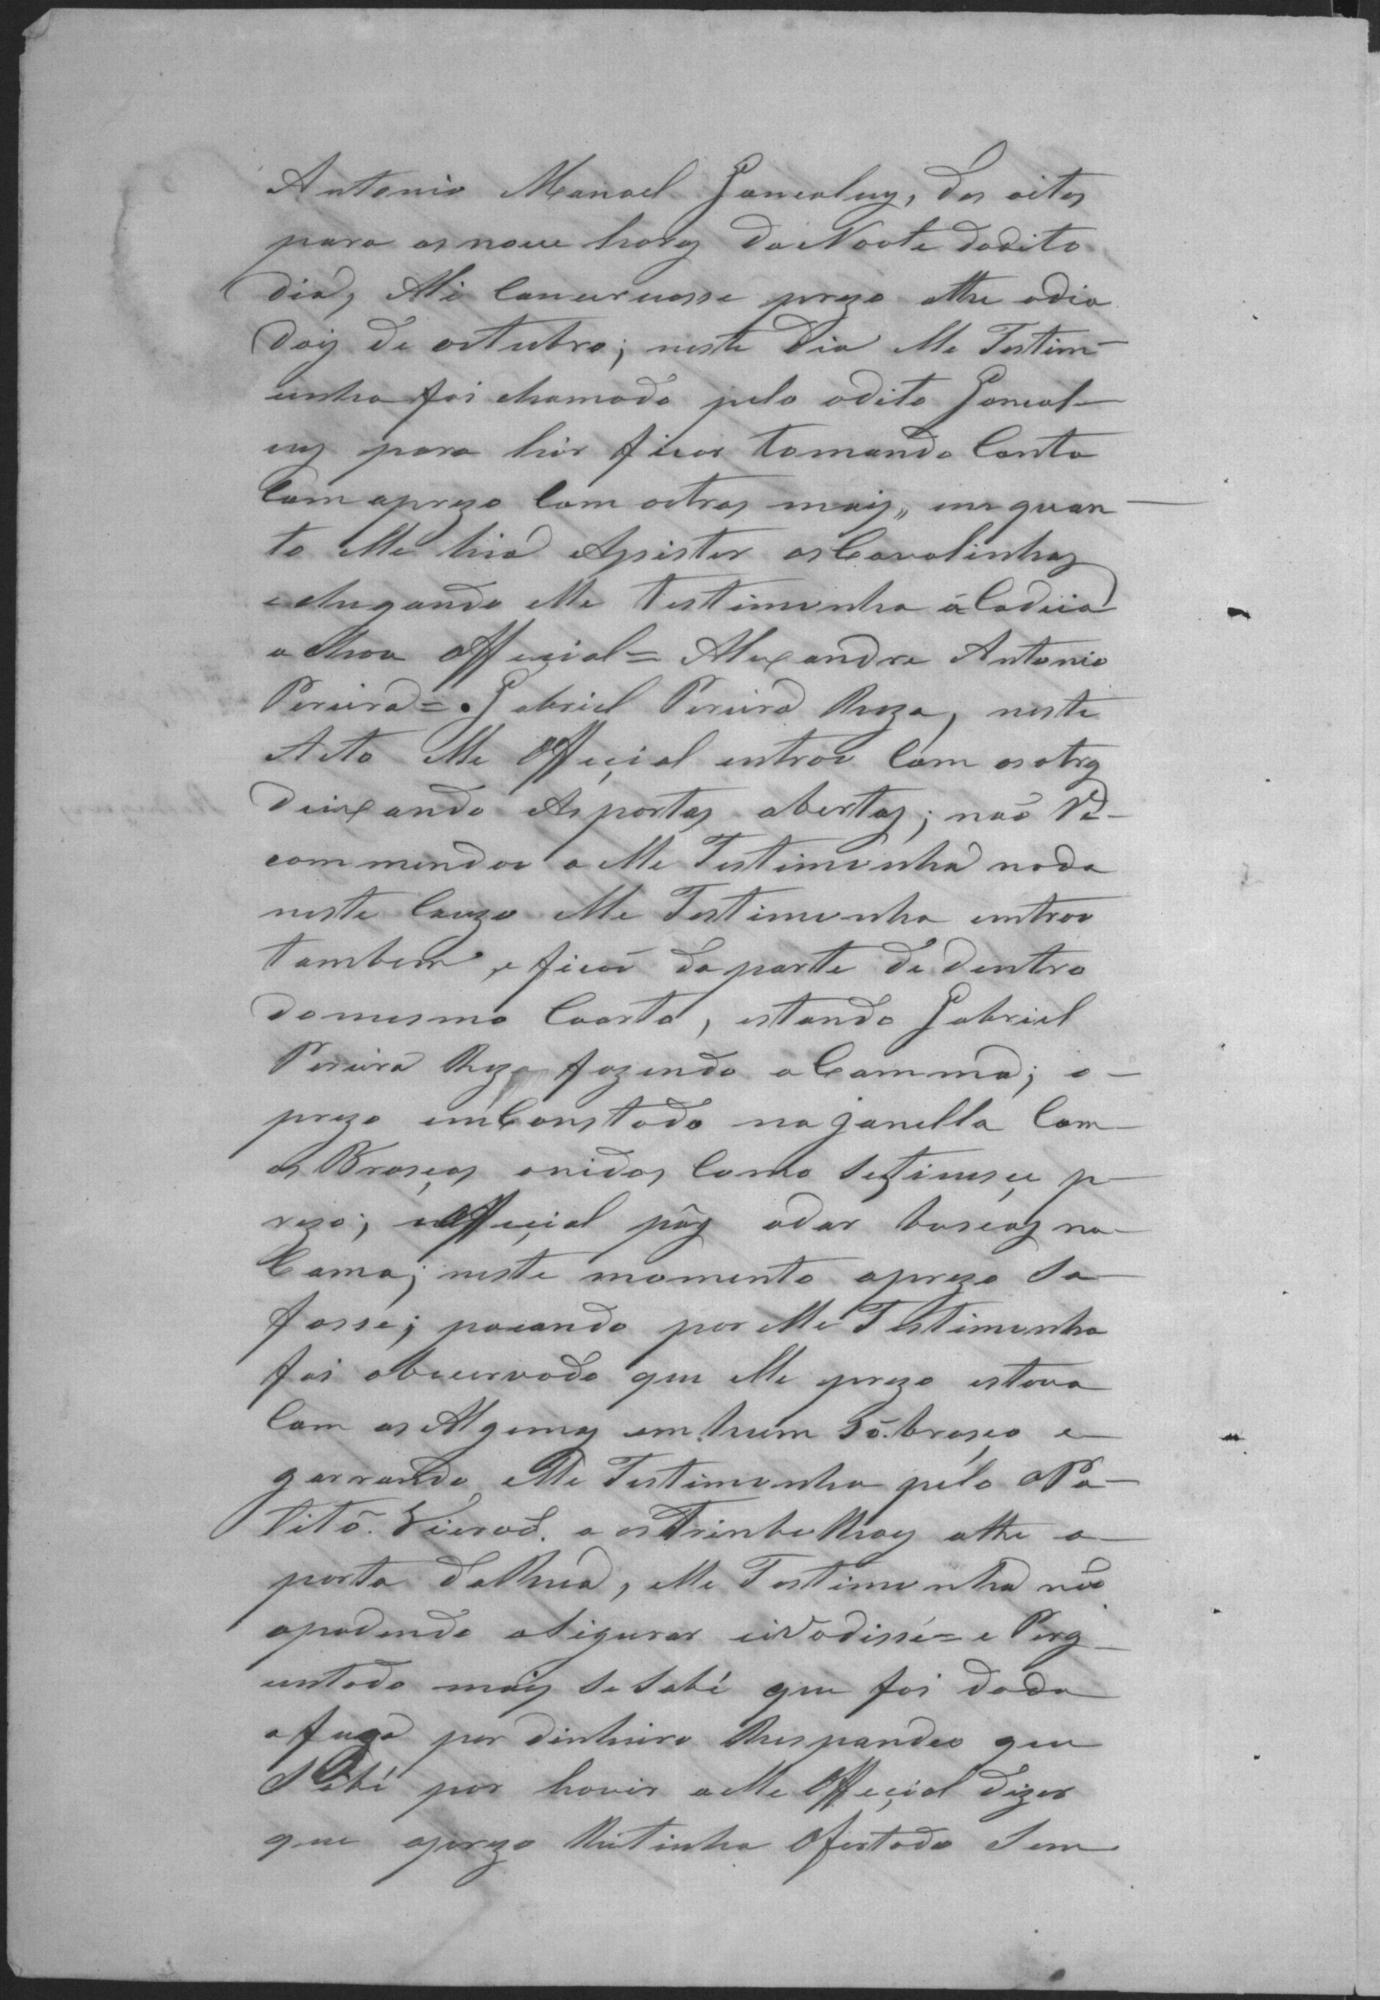 Antonio Manoel Goncalvez, das oitos
para as nove horas da Noote dodito
dia, Ali Concervosse prezo athe odia
doiz de octubro; neste Dia elle Testem-
unha foi chamado pelo odito Goncal-
vez para hir ficar tomando Conta
Com oprezo Com octros maiz, en quan-
to elle hia Asister os Cavalinhos
echegando elle testimunha á Cadeia
achou Official = Alexandre Antonio
Pereira = Gabriel Pereira Roza, neste
Acto elle Official entrou Com os otros
deixando As portas abertas; não Re-
commendou a elle Testimunha nada
neste Cauzo elle Testimunha entrou
tambem e ficou da parte de dentro
domesmo Coarto, estando Gabriel
Pereira Roza fazendo a Camma; o
prezo enConstado na janella Com
os Brasços onidos Como Setivesçe p-
rezo; oOfficial pôz adar buscas na
Cama; neste momento oprezo Sa
fosse; pacando por elle Testimunha
foi obcervado que elle prezo estava
Com as Algemas em hum Só brasço e
garrando elle Testimunha pelo oPa-
litó. athe a
porta da Rua, elle Testimunha não
opodendo aSigurar = e Perg-
untado maiz Se Sabé que foi dada
a fuga por dinheiro Respondeo que
Sabé por houvir a elle Official dizer
que oprezo tinha Ofertado Sem